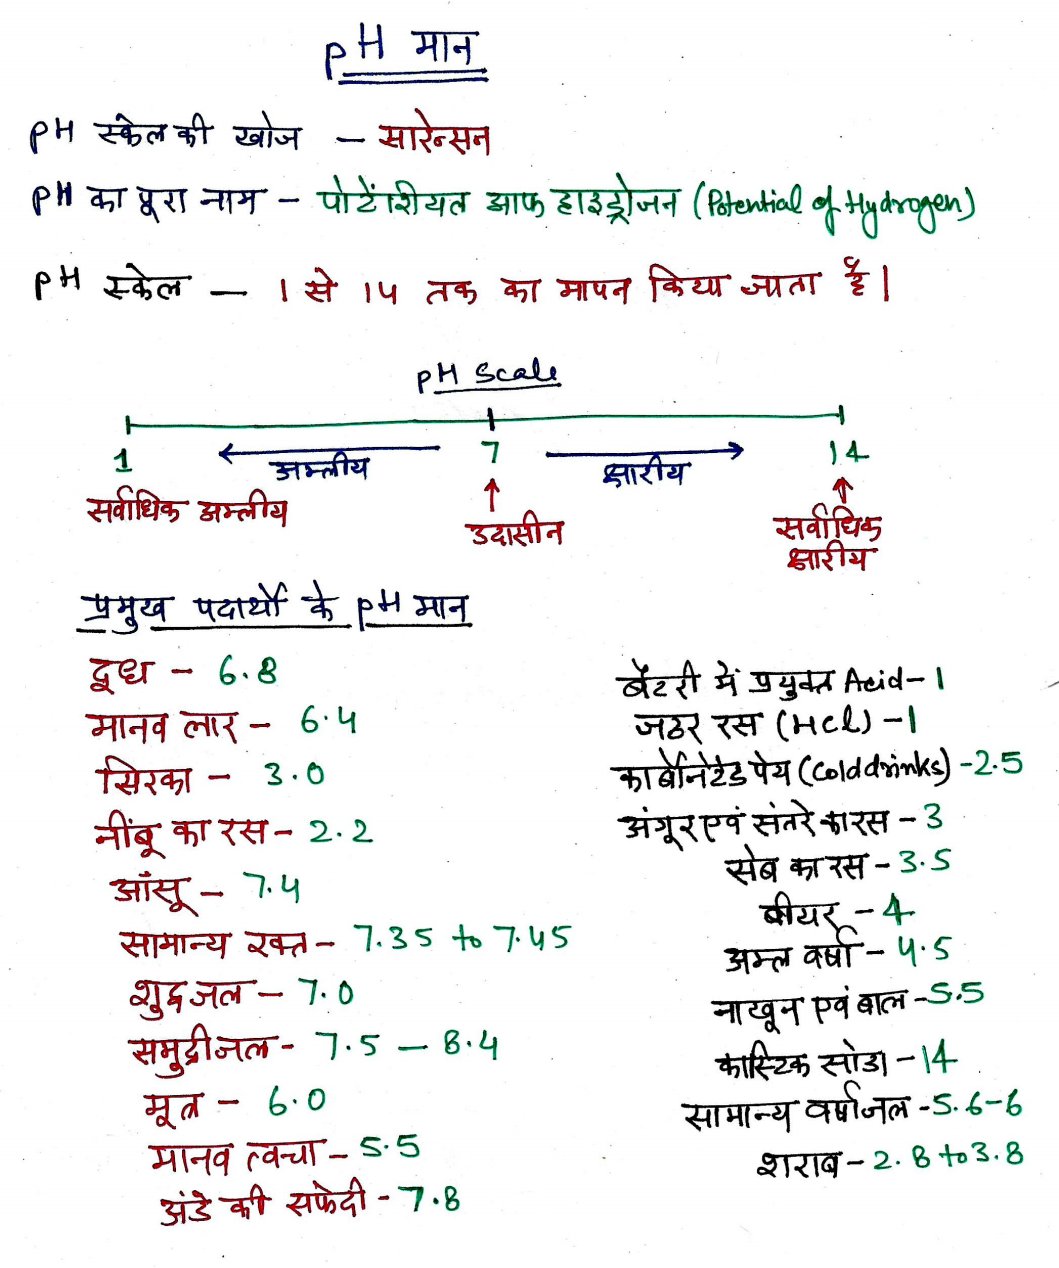 pH मान
pH स्केल की खोज – सारेन्सन
pH का पूरा नाम – पोटेंशियल आफ हाइड्रोजन (Potential of Hydrogen)
pH स्केल – 1 से 14 तक का मापन किया जाता है।
pH Scale
1 7 14
अम्लीय क्षारीय
सर्वाधिक अम्लीय
उदासीन
सर्वाधिक
क्षारीय
प्रमुख पदार्थो के pH मान
दूध – 6.8
मानव लार – 6.4
सिरका – 3.0
नींबू का रस – 2.2
आँसू – 7.4
सामान्य रक्त – 7.35 to 7.45
शुद्ध जल – 7.0
समुद्री जल - 7.5 – 8.4
मूत्र – 6.0
मानव त्वचा – 5.5
अंडे की सफेदी - 7.8
बैटरी में प्रयुक्त Acid – 1
जठर रस (HCl) – 1
कार्बोनेटेड पेय (Cold drinks) - 2.5
अंगूर एवं संतरे का रस – 3
सेब का रस – 3.5
बीयर – 4
अम्ल वर्षा – 4.5
नाखून एवं बाल - 5.5
कास्टिक सोडा – 14
सामान्य वर्षाजल - 5.6-6
शराब – 2.8 to 3.8